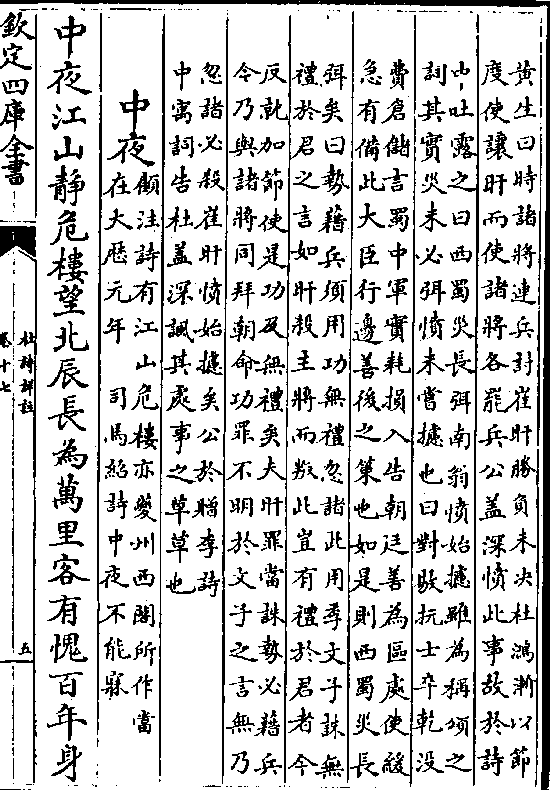 黄生曰時諸將連兵討崔旰勝負未决杜鴻漸以節
度使讓旰而使諸將各罷兵公蓋深憤此事故於詩
中吐露之曰西蜀災長弭南翁憤始攄雖為稱頌之
詞其實災未必弭憤未嘗攄也曰對敭抏士卒乾没
費倉儲言蜀中軍實耗損入告朝廷善為區處使緩
急有備此大臣行邊善後之策也如是則西蜀災長
弭矣曰勢藉兵須用功無禮忽諸此用季文子誅無
禮於君之言如旰殺主將而叛此豈有禮於君者今
反就加節使是功及無禮矣夫旰罪當誅勢必藉兵
令乃與諸將同拜朝命功罪不明於文子之言無乃
忽諸必殺崔旰憤始攄矣公於贈李詩
中寓詞告杜蓋深諷其處事之草草也
中夜
顧注詩有江山危樓亦夔州西閣所作當
在大歴元年 司馬紹詩中夜不能寐
中夜江山靜危樓望北辰長為萬里客有愧百年身
欽定四庫全書
杜詩詳註
卷十七
五